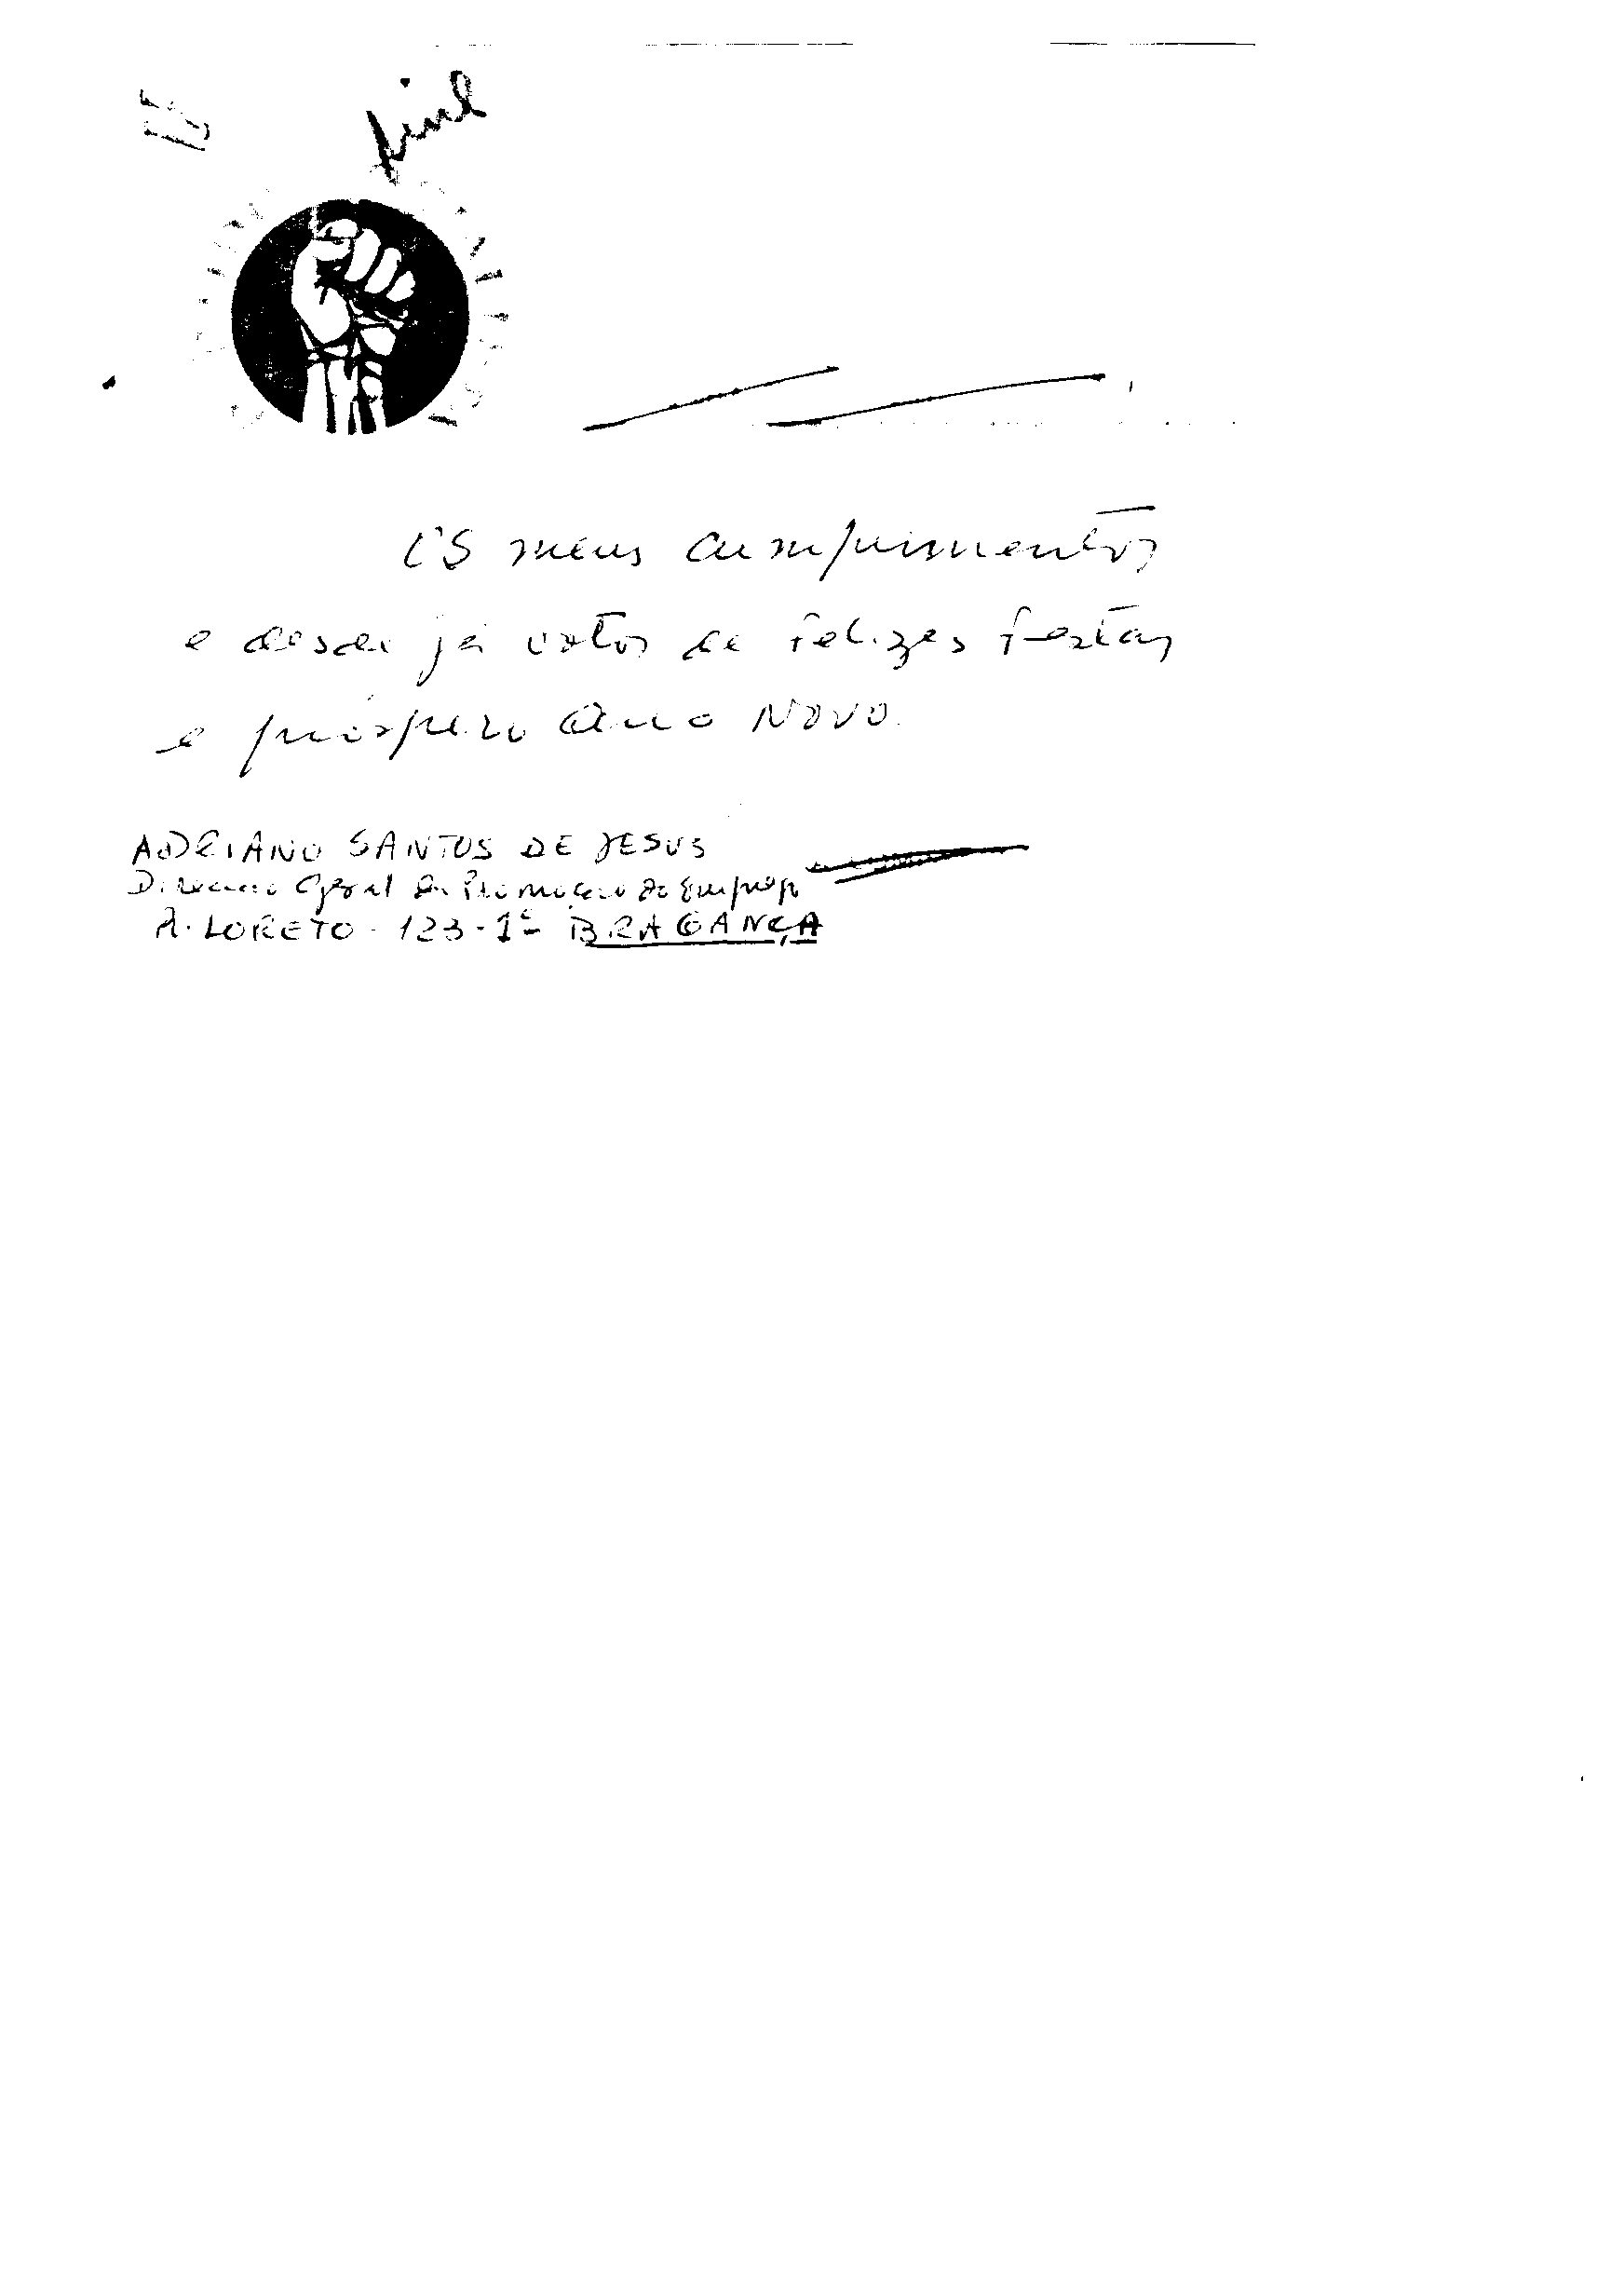 Os meus cumprimentos
e desde já votos de Felizes Festas
e próspero Ano Novo.
ADRIANO SANTOS DE JESUS
Direcção Geral da Promoção do Emprego
R. LORETO - 123 - 1º BRAGANÇA